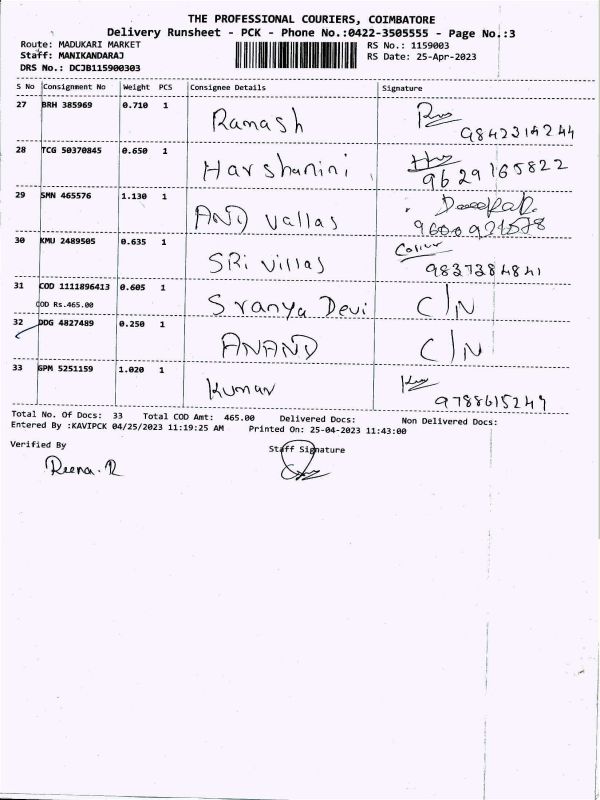 THE PROFESSIONAL COURIERS, COIMBATORE
Delivery Runsheet - PCK - Phone No.:0422-3505555 - Page No.:3
Route: MADUKARI MARKET RS No.: 1159003
Staff: MANIKANDARAJ RS Date: 25-Apr-2023
DRS No.: DCJB115900303
S No Consignment No Weight PCS Consignee Details Signature
27 BRH 385969 0.710 1 Ramash
9842314244
28 TCG 50370845 0.650 1 Harshanini
9629165822
29 SMN 465576 1.130 1 AND vallas Deepak
30 KMU 2489505 0.635 1 SRi villas
9837384841
31 COD 1111896413 0.605 1 Sranya Devi C/N
COD Rs.465.00
32 DDG 4827489 0.250 1 ANAND C/N
33 GPM 5251159 1.020 1 Kumar
9788615247
Total No. Of Docs: 33 Total COD Amt: 465.00 Delivered Docs: Non Delivered Docs:
Entered By :KAVIPCK 04/25/2023 11:19:25 AM Printed On: 25-04-2023 11:43:00
Verified By Staff Signature
Reena.R